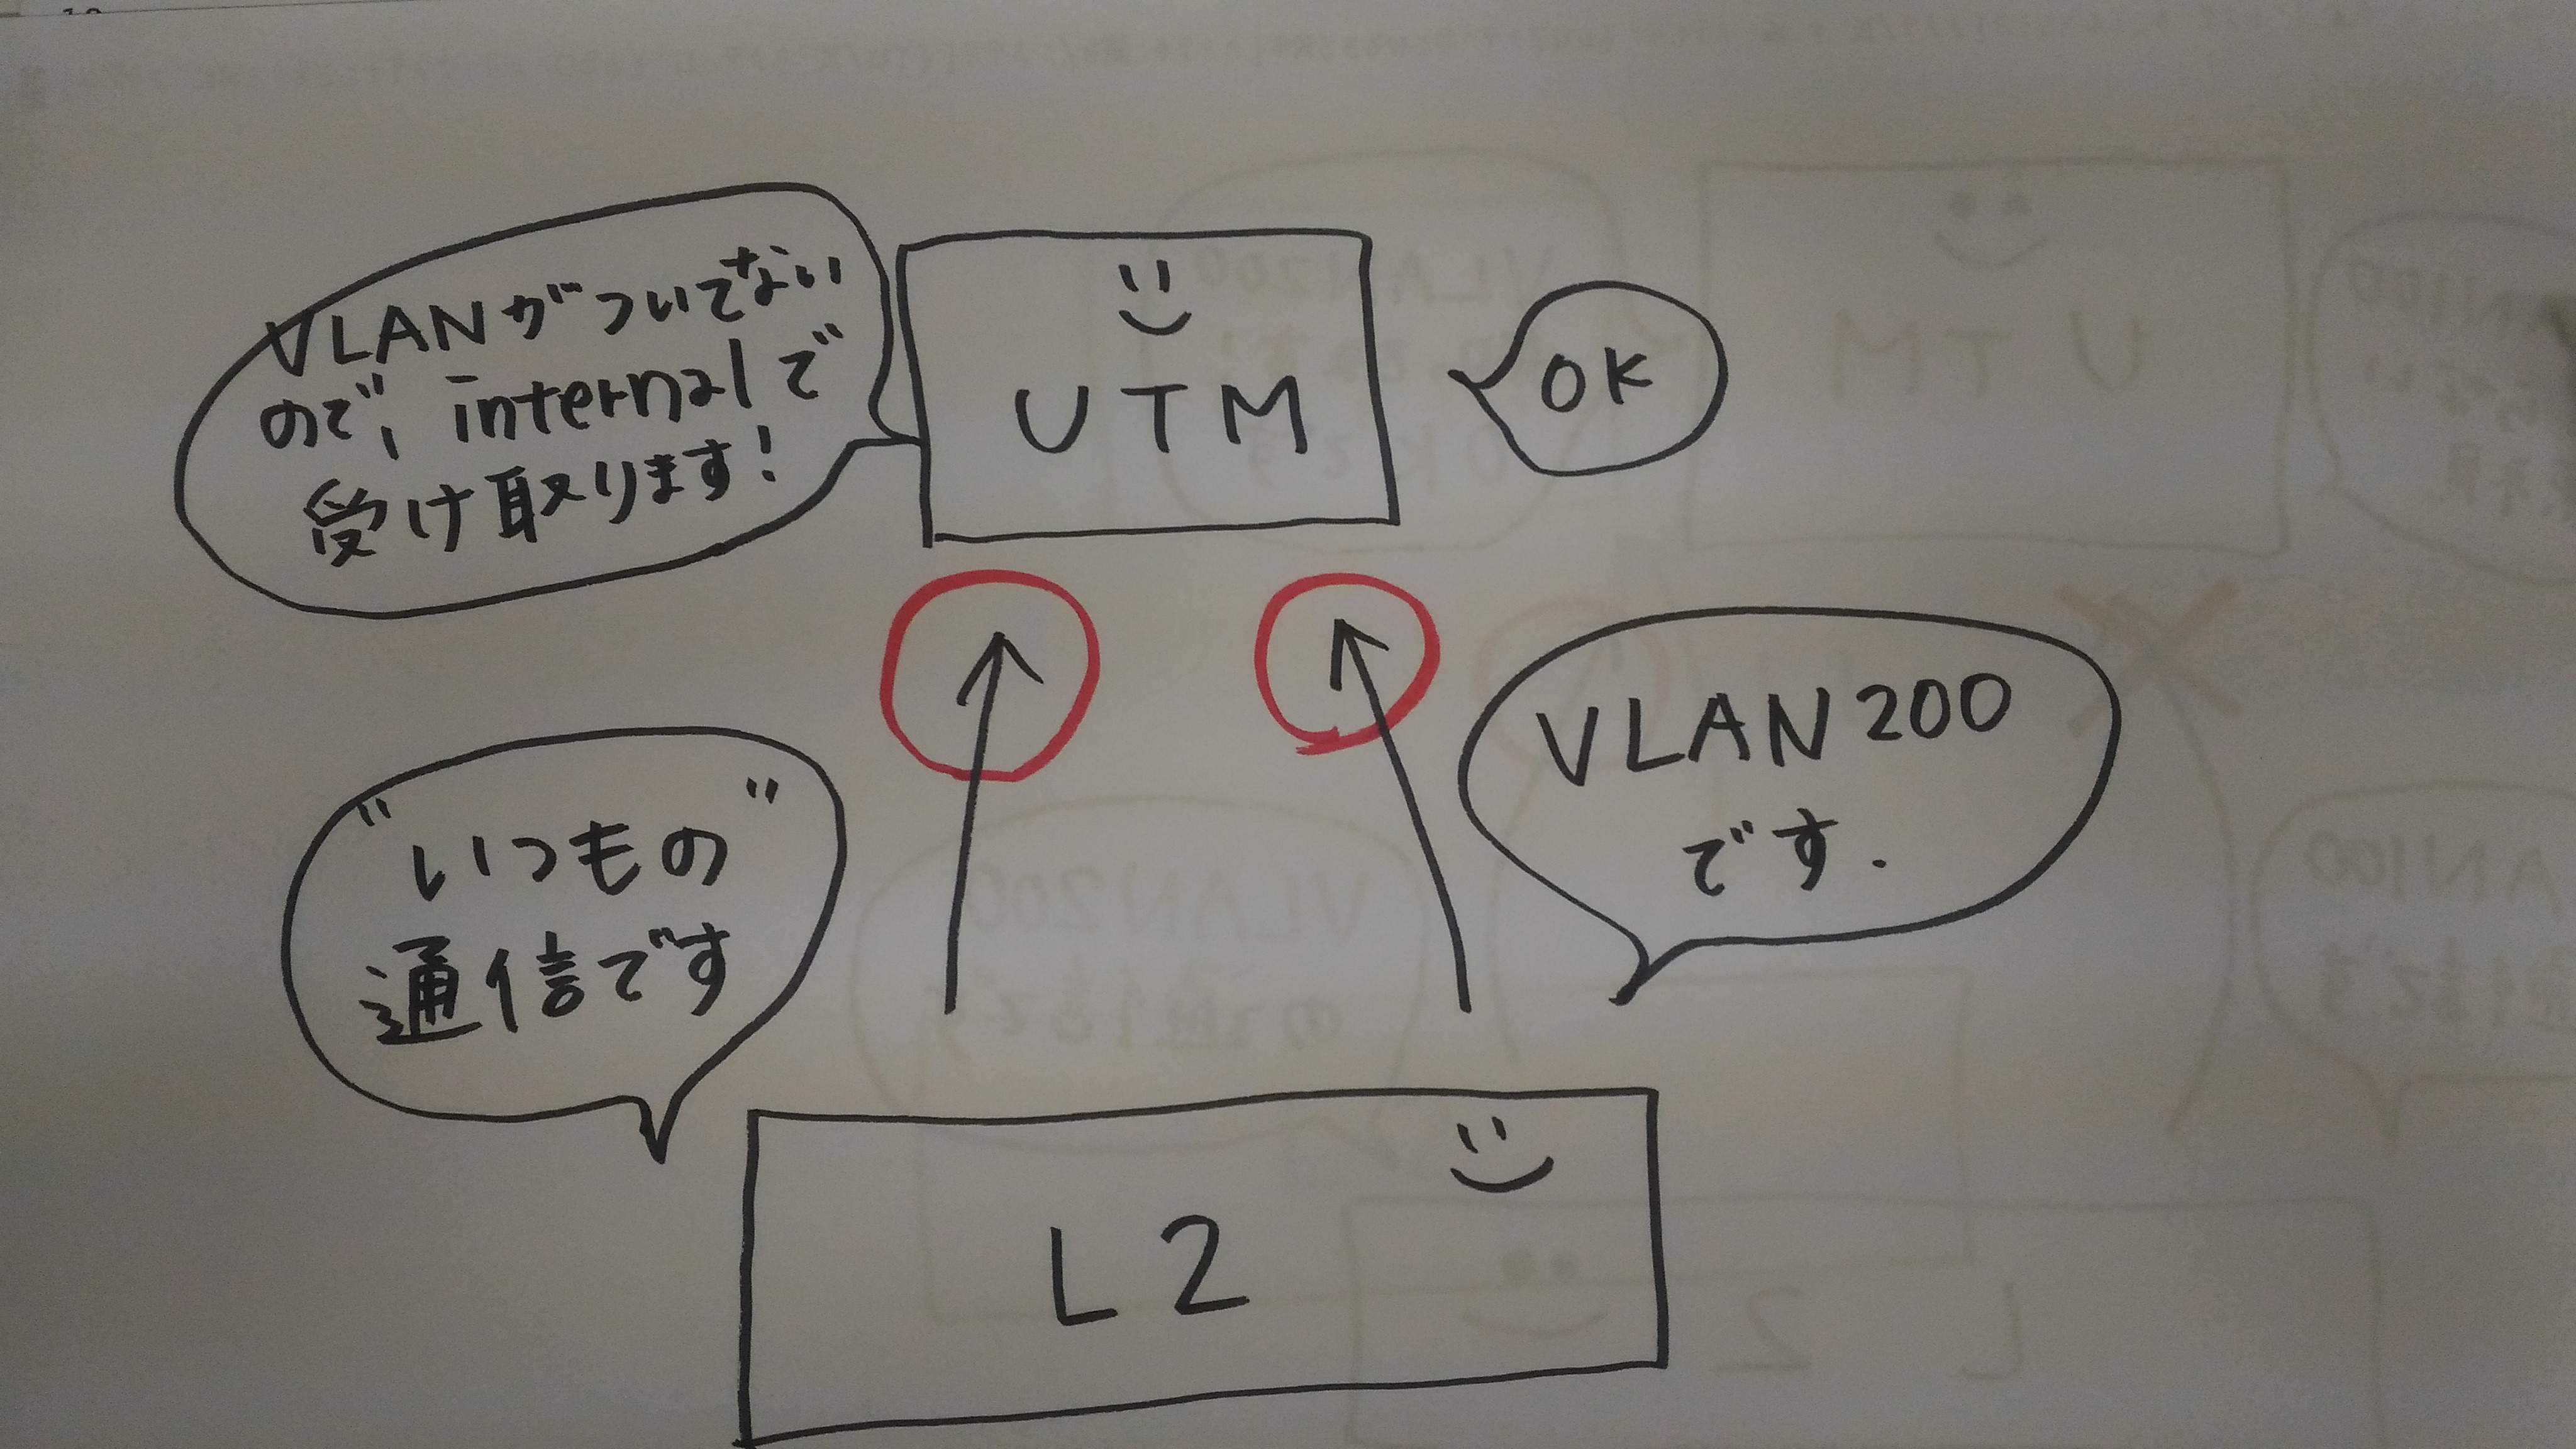 VLANがついてない
ので、internalで
受け取ります!
UTM
OK
"いつもの"
通信です
VLAN200
です.
L2